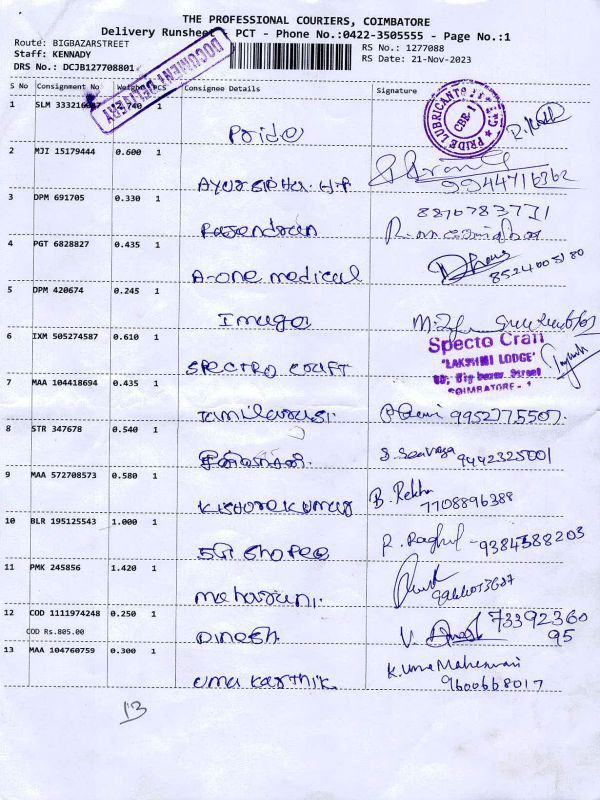 THE PROFESSIONAL COURIERS, COIMBATORE
Delivery Runsheet - PCT - Phone No.:0422-3505555 - Page No.:1
Route: BIGBAZARSTREET
RS No.: 1277088
Staff: KENNADY
RS Date: 21-Nov-2023
DRS No.: DCJB127708801
DOCUMENT DELIVERY
S No Consignment No Weight PCS Consignee Details Signature
1 SLM 1
Pride
PRIDE LUBRICANTS
CBE-1
2 MJI 15179444 0.600 1
9944716362
3 DPM 691705 0.330 1
Rajendran
4 PGT 6828827 0.435 1
A-one medical
8524005180
5 DPM 420674 0.245 1
Image
6 IXM 505274587 0.610 1
SPECTRO CRAFT
Specto Craft
"LAKSHMI LODGE"
Big bazar Street
COIMBATORE - 1
7 MAA 104418694 0.435 1
Tamilarasi 9952775507.
8 STR 347678 0.540 1
9442325001
9 MAA 572708573 0.580 1
KISHORE KUMAR B. Rekha
7708896388
10 BLR 195125543 1.000 1
SGI Shopee R. Raghul - 9384588203
11 PMK 245856 1.420 1
Maharani.
12 COD 1111974248 0.250 1
COD Rs.805.00
Dinesh V. Dinesh 73392360
95
13 MAA 104760759 0.300 1
Uma Karthik K. Uma Maheswari
9600668017
13